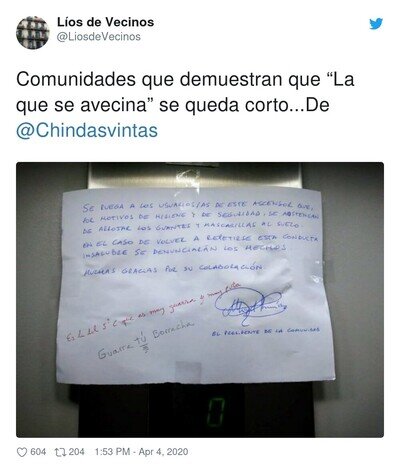 Líos de Vecinos
@LiosdeVecinos
Comunidades que demuestran que “La
que se avecina” se queda corto...De
@Chindasvintas
SE RUEGA A LOS USUARIOS/AS DE ESTE ASCENSOR QUE,
POR MOTIVOS DE HIGIENE Y DE SEGURIDAD, SE ABSTENGAN
DE ARROJAR LOS GUANTES Y MASCARILLAS AL SUELO
EN EL CASO DE VOLVER A REPETIRSE ESTA CONDUCTA
INSALUBRE SE DENUNCIARÁN LOS HECHOS.
MUCHAS GRACIAS POR SU COLABORACIÓN.
Es la del 5º C que es muy guarra y muy puta
Guarra tú
Borracha
EL PRESIDENTE DE LA COMUNIDAD
0
604 204 1:53 PM - Apr 4, 2020